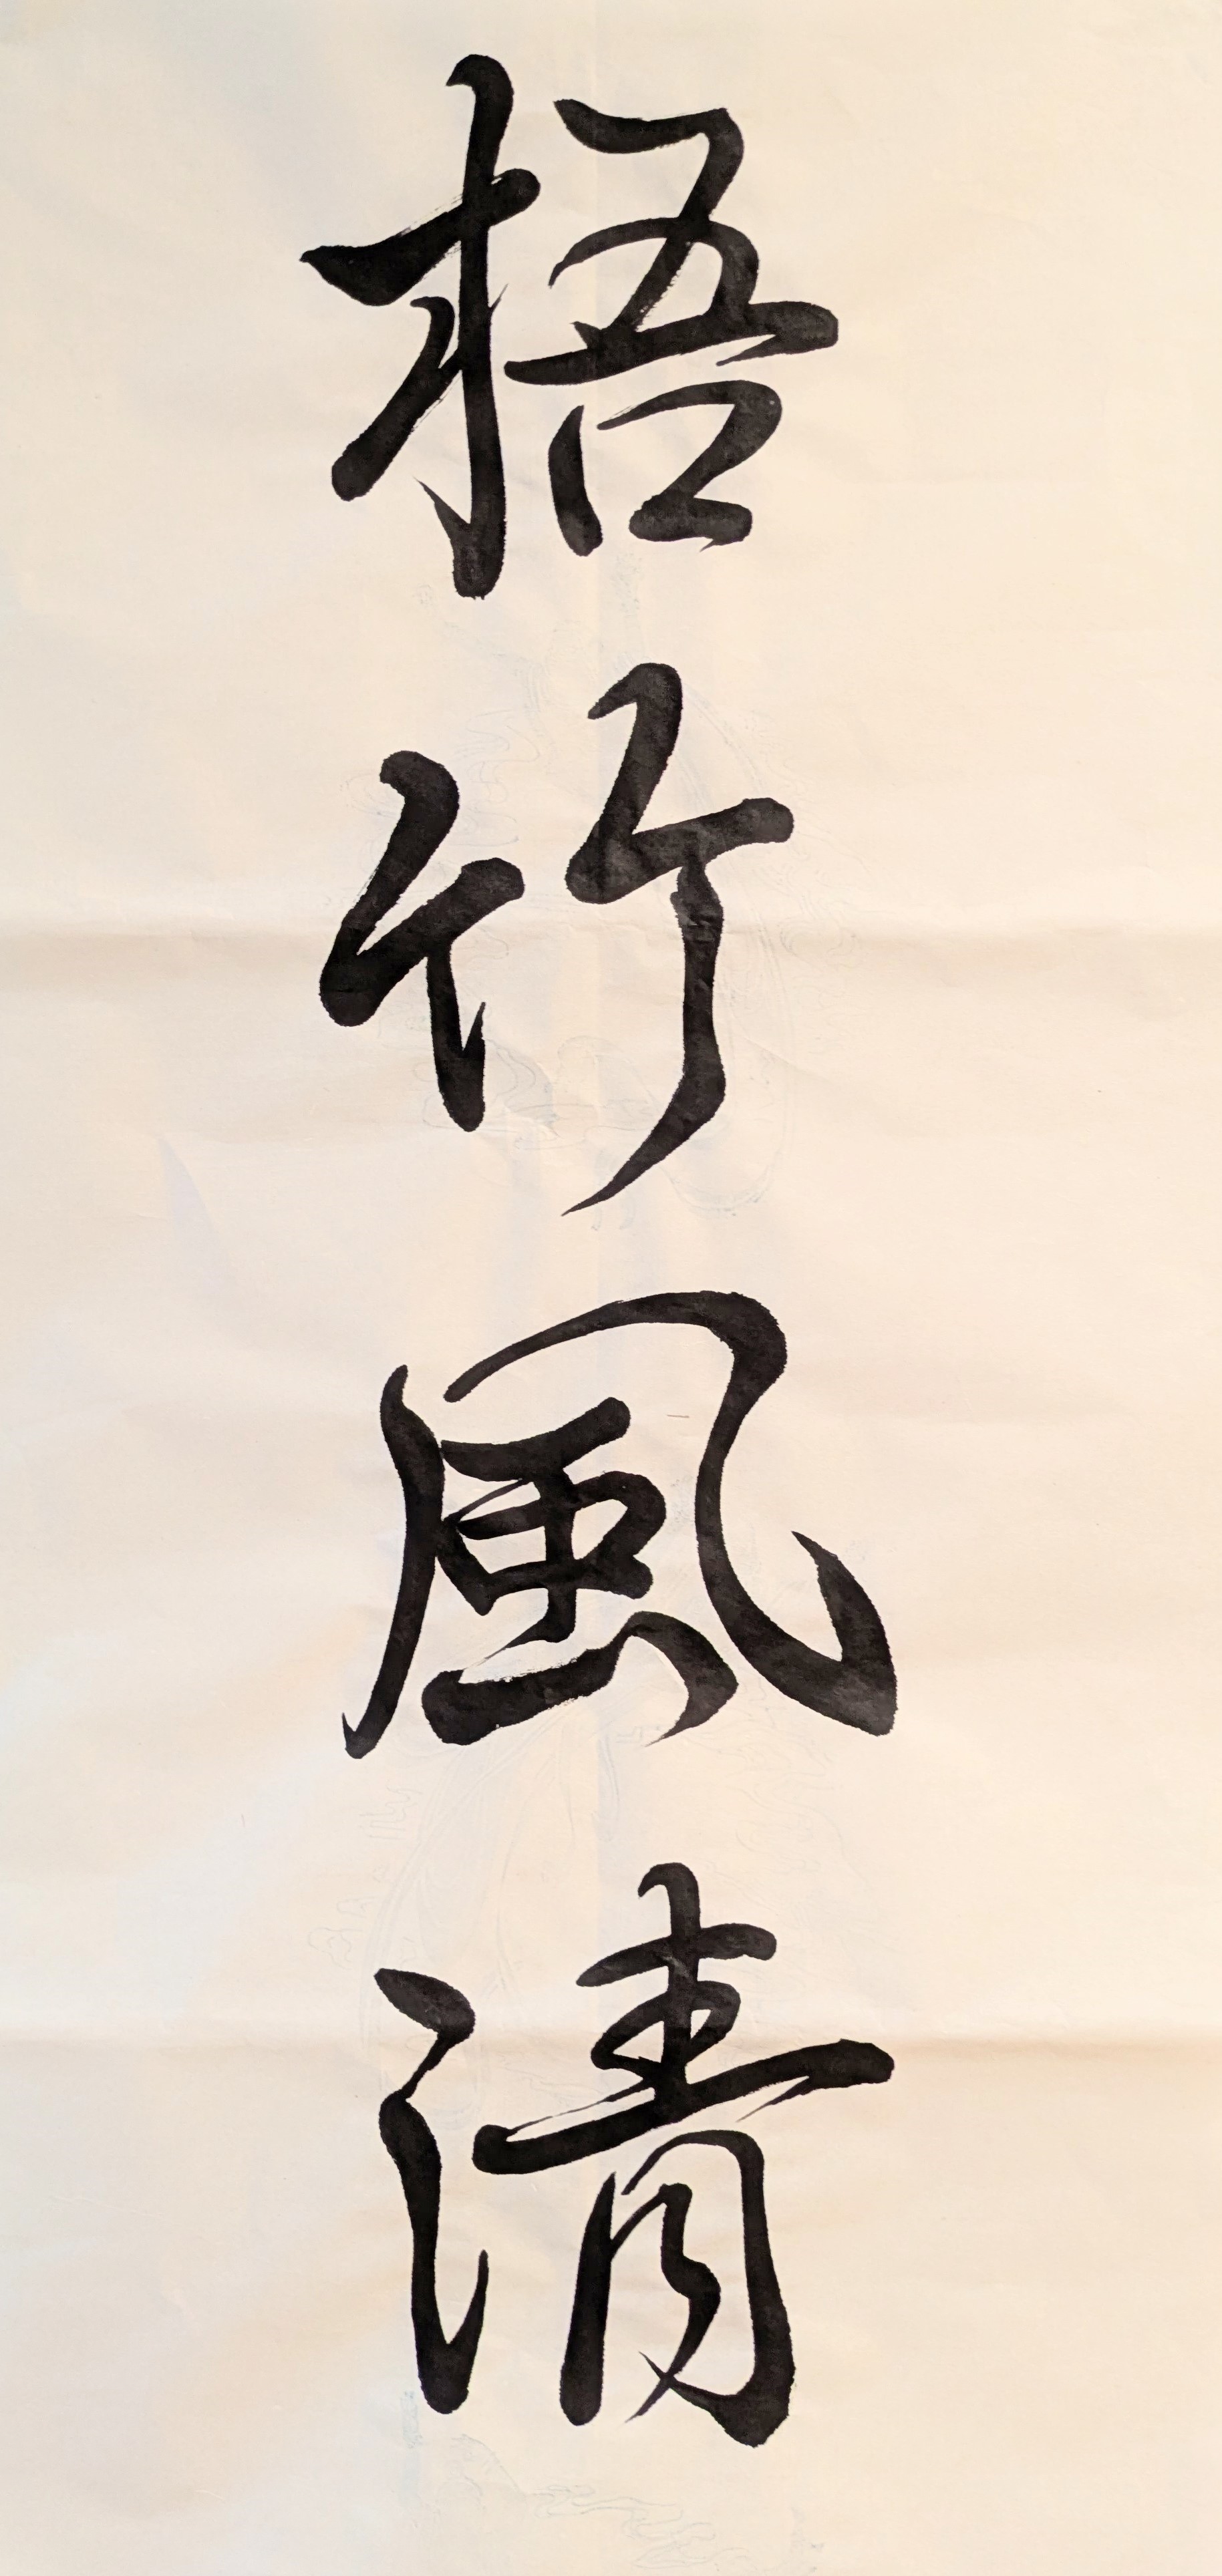 梧竹風清